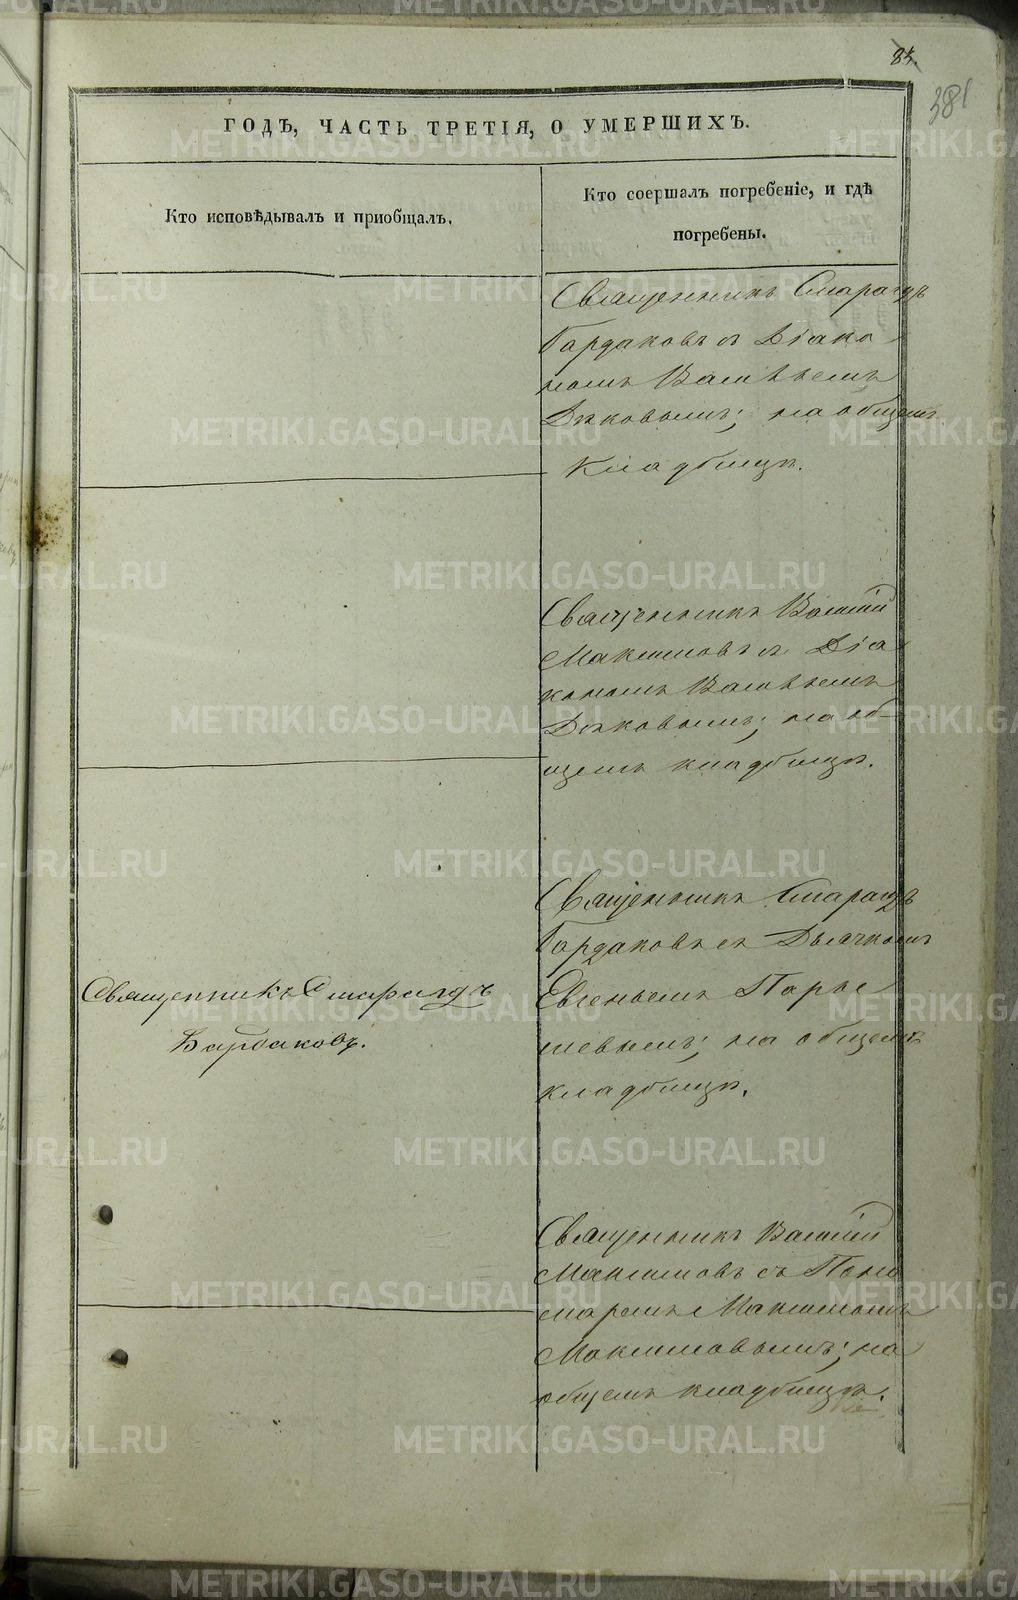 83.
381
ГОДЪ, ЧАСТЬ ТРЕТІЯ, О УМЕРШИХЪ.
Кто исповѣдывалъ и приобщалъ.
Кто соершалъ погребеніе, и гдѣ
погребены.
Священникъ Смарагдъ
Бардаковъ съ Діако
номъ
Дьяковымъ; на общемъ
кладбищѣ.
Священникъ Василій
Максимовъ съ Діа
кономъ
Дьяковымъ; на об-
щемъ кладбищѣ.
Священникъ Смарагдъ
Бардаковъ съ Дьячкомъ
Евгеньемъ Пары
шевымъ; на общемъ
кладбищѣ.
Священникъ Смарагдъ
Бардаковъ.
Священникъ Василій
Максимовъ съ Поно
маремъ Максимомъ
Максимовымъ; на
общемъ кладбищѣ.
METRIKI.GASO-URAL.RU